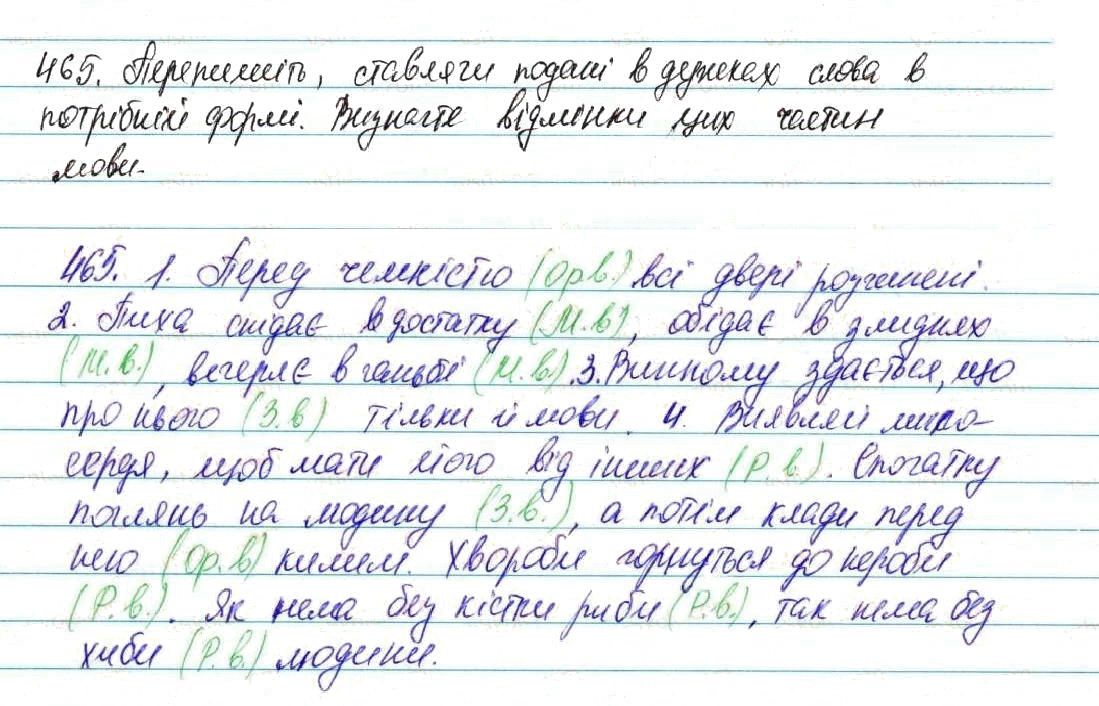 465. Перепишіть, ставлячи подані в дужках слова в
потрібній формі. Визначте відмінки цих частин
мови.
465. 1. Перед чемністю (Ор.в.) всі двері розчинені.
2. Пиха снідає в достатку (М.в), обідає в злиднях
(М.в.), вечеряє в ганьбі (М.в.). 3. Винному здається, що
про нього (З.в) тільки й мови. 4. Виявляй мило-
сердя, щоб мати його від інших (Р.в.). Спочатку
поглянь на людину (З.в.), а потім клади перед
нею (Ор.в) килим. Хвороби горнуться до нероби
(Р.в.). Як нема без кістки риби (Р.в.), так нема без
хиби (Р.в.) людини.